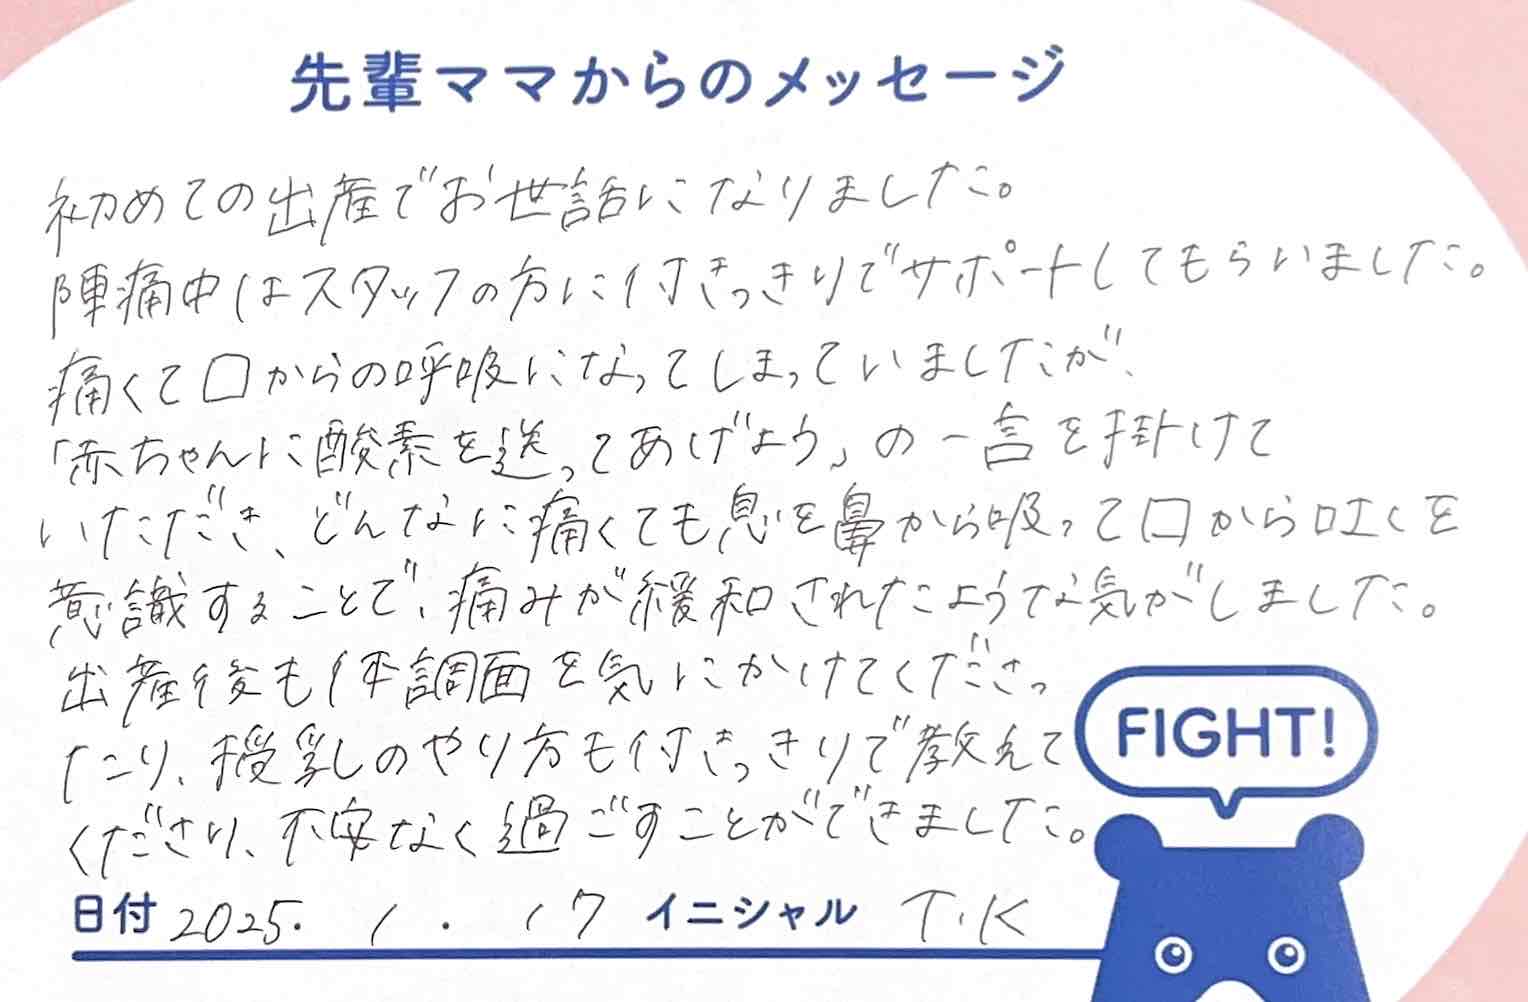 先輩ママからのメッセージ
初めての出産でお世話になりました。
陣痛中はスタッフの方に付きっきりでサポートしてもらいました。
痛くて口からの呼吸になってしまっていましたが、
「赤ちゃんに酸素を送ってあげよう」の一言を掛けて
いただき、どんなに痛くても息を鼻から吸って口から吐くを
意識することで、痛みが緩和されたような気がしました。
出産後も体調面を気にかけてくださっ
たり、授乳のやり方も付きっきりで教えて
くださり、不安なく過ごすことができました。
FIGHT!
日付 2025. 1. 17 イニシャル T.K